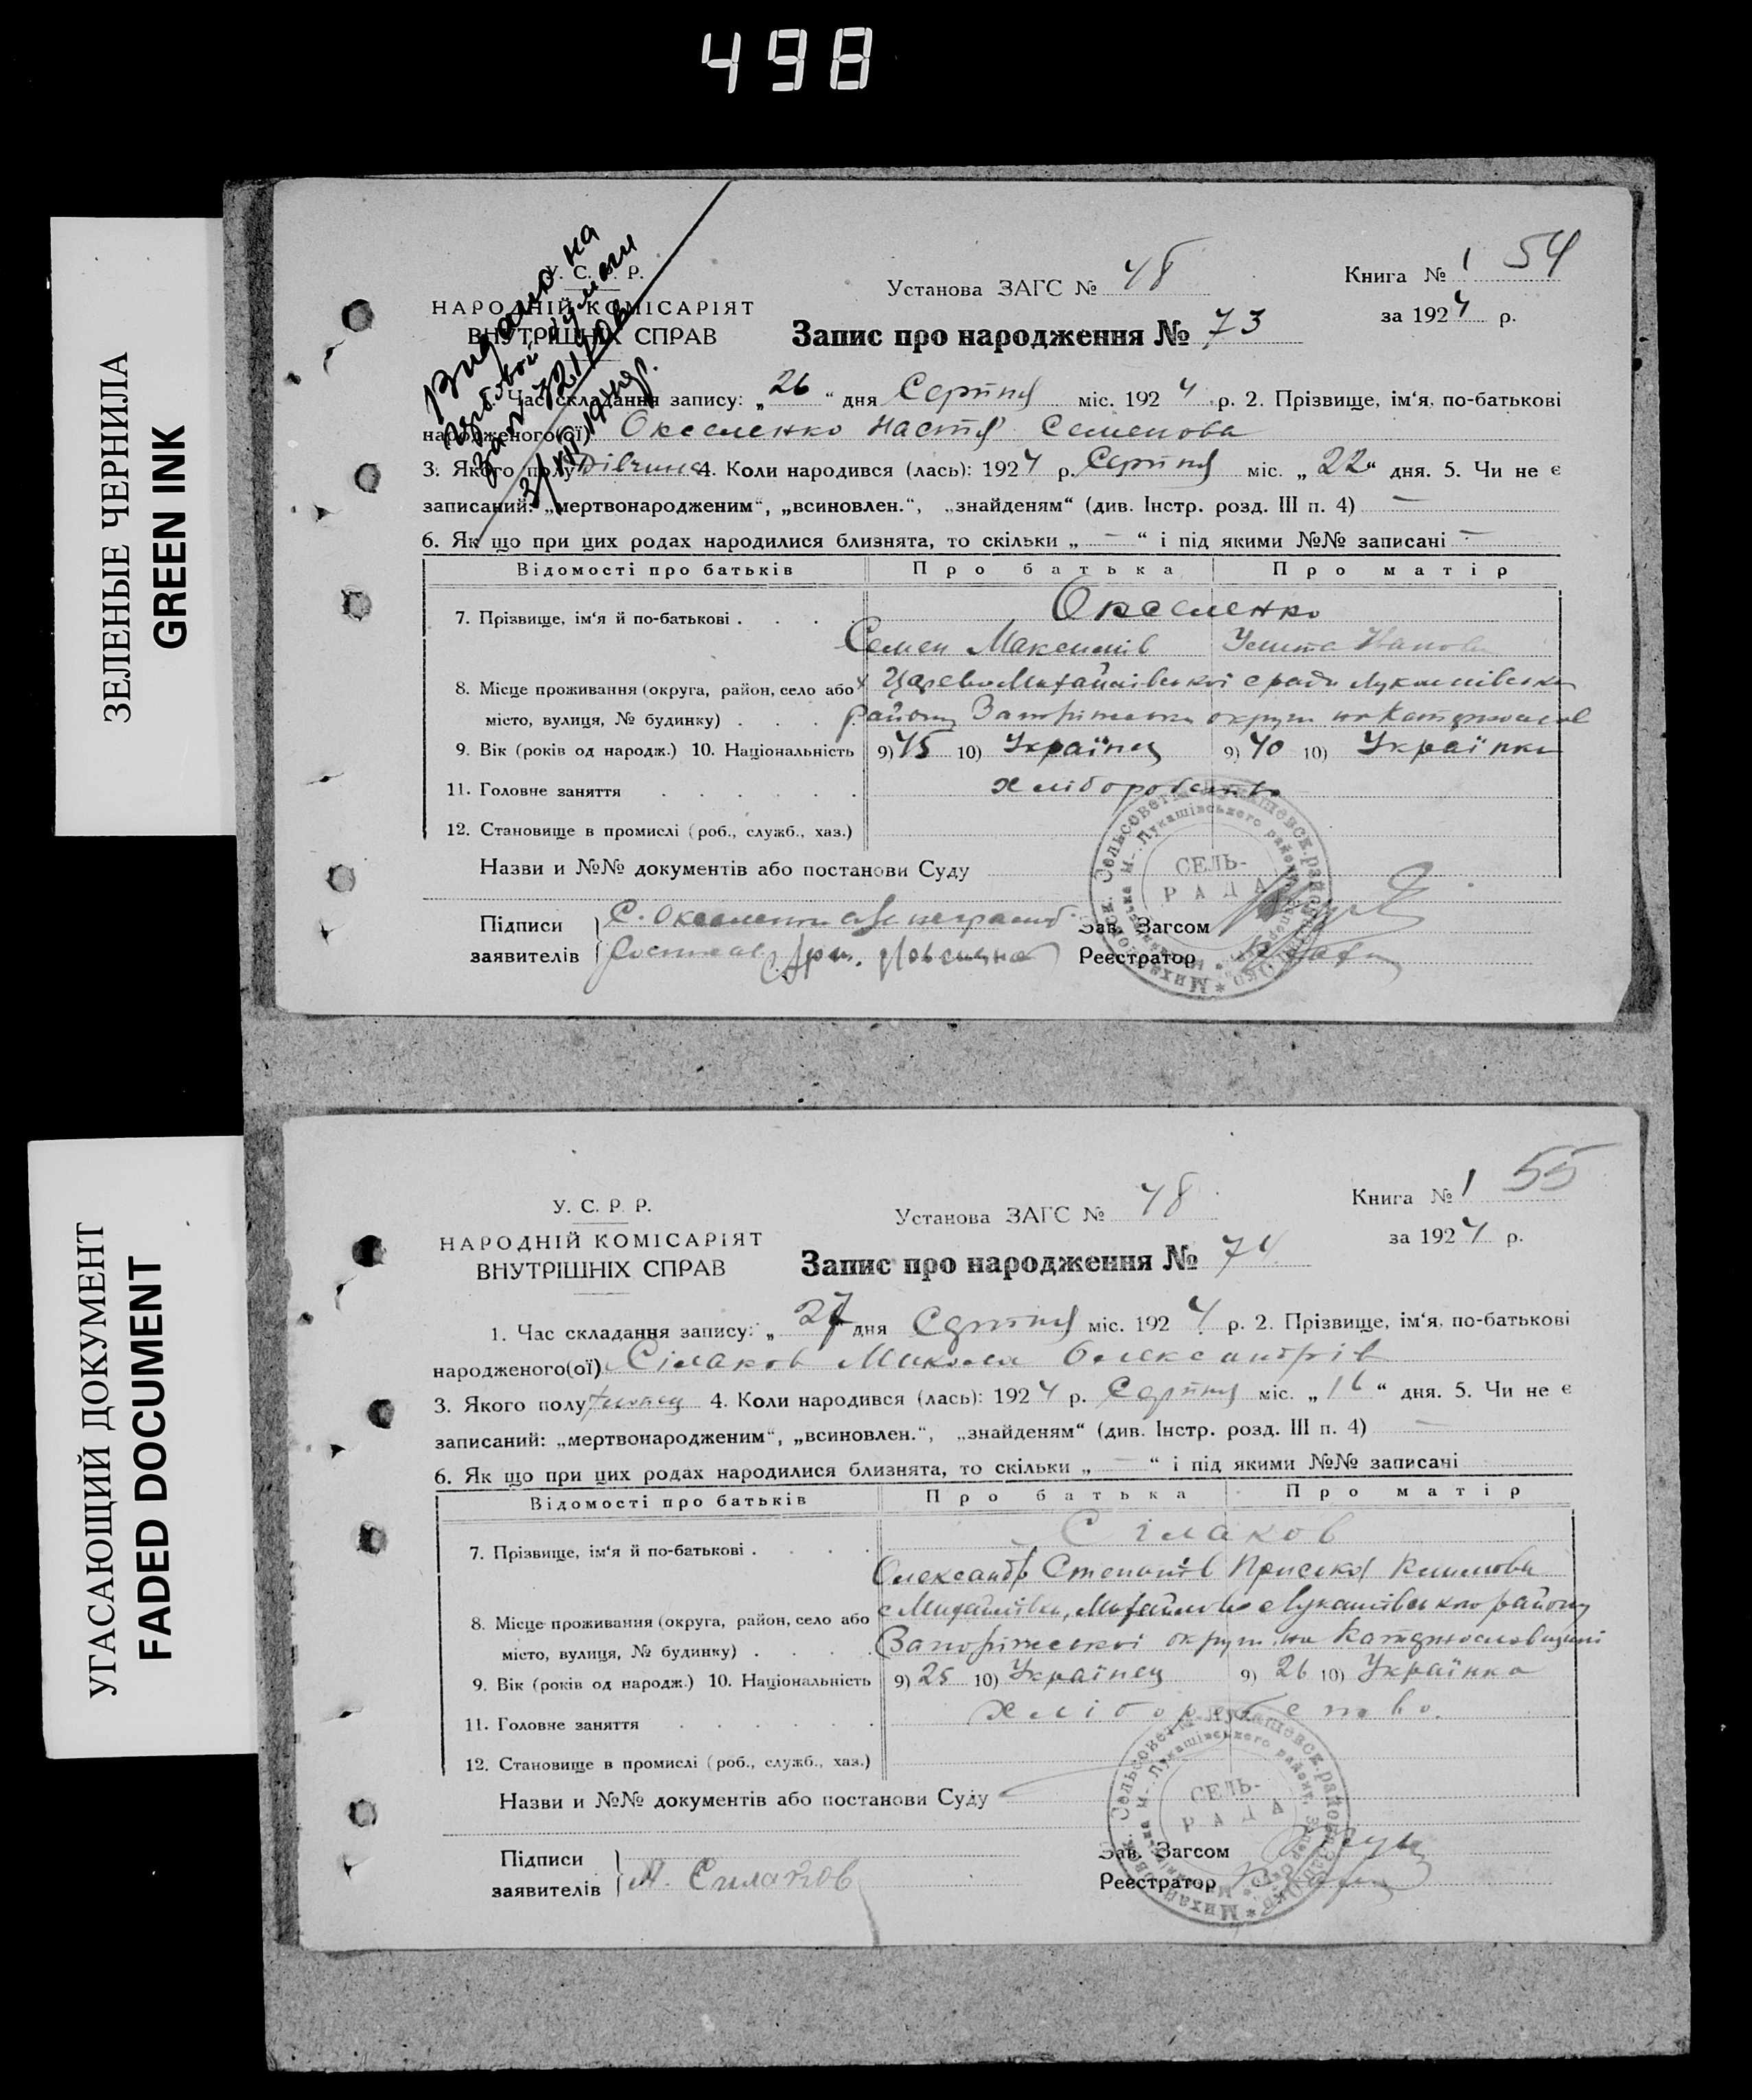 498
ЗЕЛЕНЫЕ ЧЕРНИЛА
GREEN INK
У. С. Р.
НАРОДНІЙ КОМІСАРІЯТ
ВНУТРІШНІХ СПРАВ
Видано на
Установа ЗАГС № 48
Книга № 1 54
за 1924 р.
Запис про народження № 73
1. Час складання запису: „26“ дня Серпня міс. 1924 р. 2. Прізвище, ім‘я, по-батькові
народженого(ої) Оксененко Настя Семенова
3. Якого полу Дівчина 4. Коли народився (лась): 1924 р. Серпня міс. „22“ дня. 5. Чи не є
записаний: „мертвонародженим“, „всиновлен.“, „знайденям“ (див. Інстр. розд. III п. 4) —
6. Як що при цих родах народилися близнята, то скільки „ — “ і під якими №№ записані —
Відомості про батьків Про батька Про матір
7. Прізвище, ім‘я й по-батькові . . . . Оксененко
Семен Максимів Улита Іванова
8. Місце проживання (округа, район, село або
місто, вулиця, № будинку) . . . . району округи на
9. Вік (років од народж.) 10. Національність 9) 45 10) Українец 9) 40 10) Українка
11. Головне заняття . . . . . . хліборобство
12. Становище в промислі (роб., служб., хаз.)
Назви и №№ документів або постанови Суду
СЕЛЬ-
РАДА
Підписи
заявителів
Зав. Загсом
Реєстратор
УГАСАЮЩИЙ ДОКУМЕНТ
FADED DOCUMENT
У. С. Р. Р.
НАРОДНІЙ КОМІСАРІЯТ
ВНУТРІШНІХ СПРАВ
Установа ЗАГС № 48
Книга № 1 55
за 1924 р.
Запис про народження № 74
1. Час складання запису: „27 дня Серпня міс. 1924 р. 2. Прізвище, ім‘я, по-батькові
народженого(ої) Сілаков Микола Олександрів
3. Якого полу 4. Коли народився (лась): 1924 р. Серпня міс. „16“ дня. 5. Чи не є
записаний: „мертвонародженим“, „всиновлен.“, „знайденям“ (див. Інстр. розд. III п. 4) —
6. Як що при цих родах народилися близнята, то скільки „ — “ і під якими №№ записані
Відомості про батьків Про батька Про матір
7. Прізвище, ім‘я й по-батькові . . . . Сілаков
Олександр Степанів Приська
8. Місце проживання (округа, район, село або с Михайлівка, Лукашівського району
місто, вулиця, № будинку) . . . . Запоріжської округи на Катеринославщині
9. Вік (років од народж.) 10. Національність 9) 25 10) Українец 9) 26 10) Українка
11. Головне заняття . . . . . . хліборобство.
12. Становище в промислі (роб., служб., хаз.)
Назви и №№ документів або постанови Суду
СЕЛЬ-
РАДА
Підписи
заявителів А. Силаков
Зав. Загсом
Реєстратор